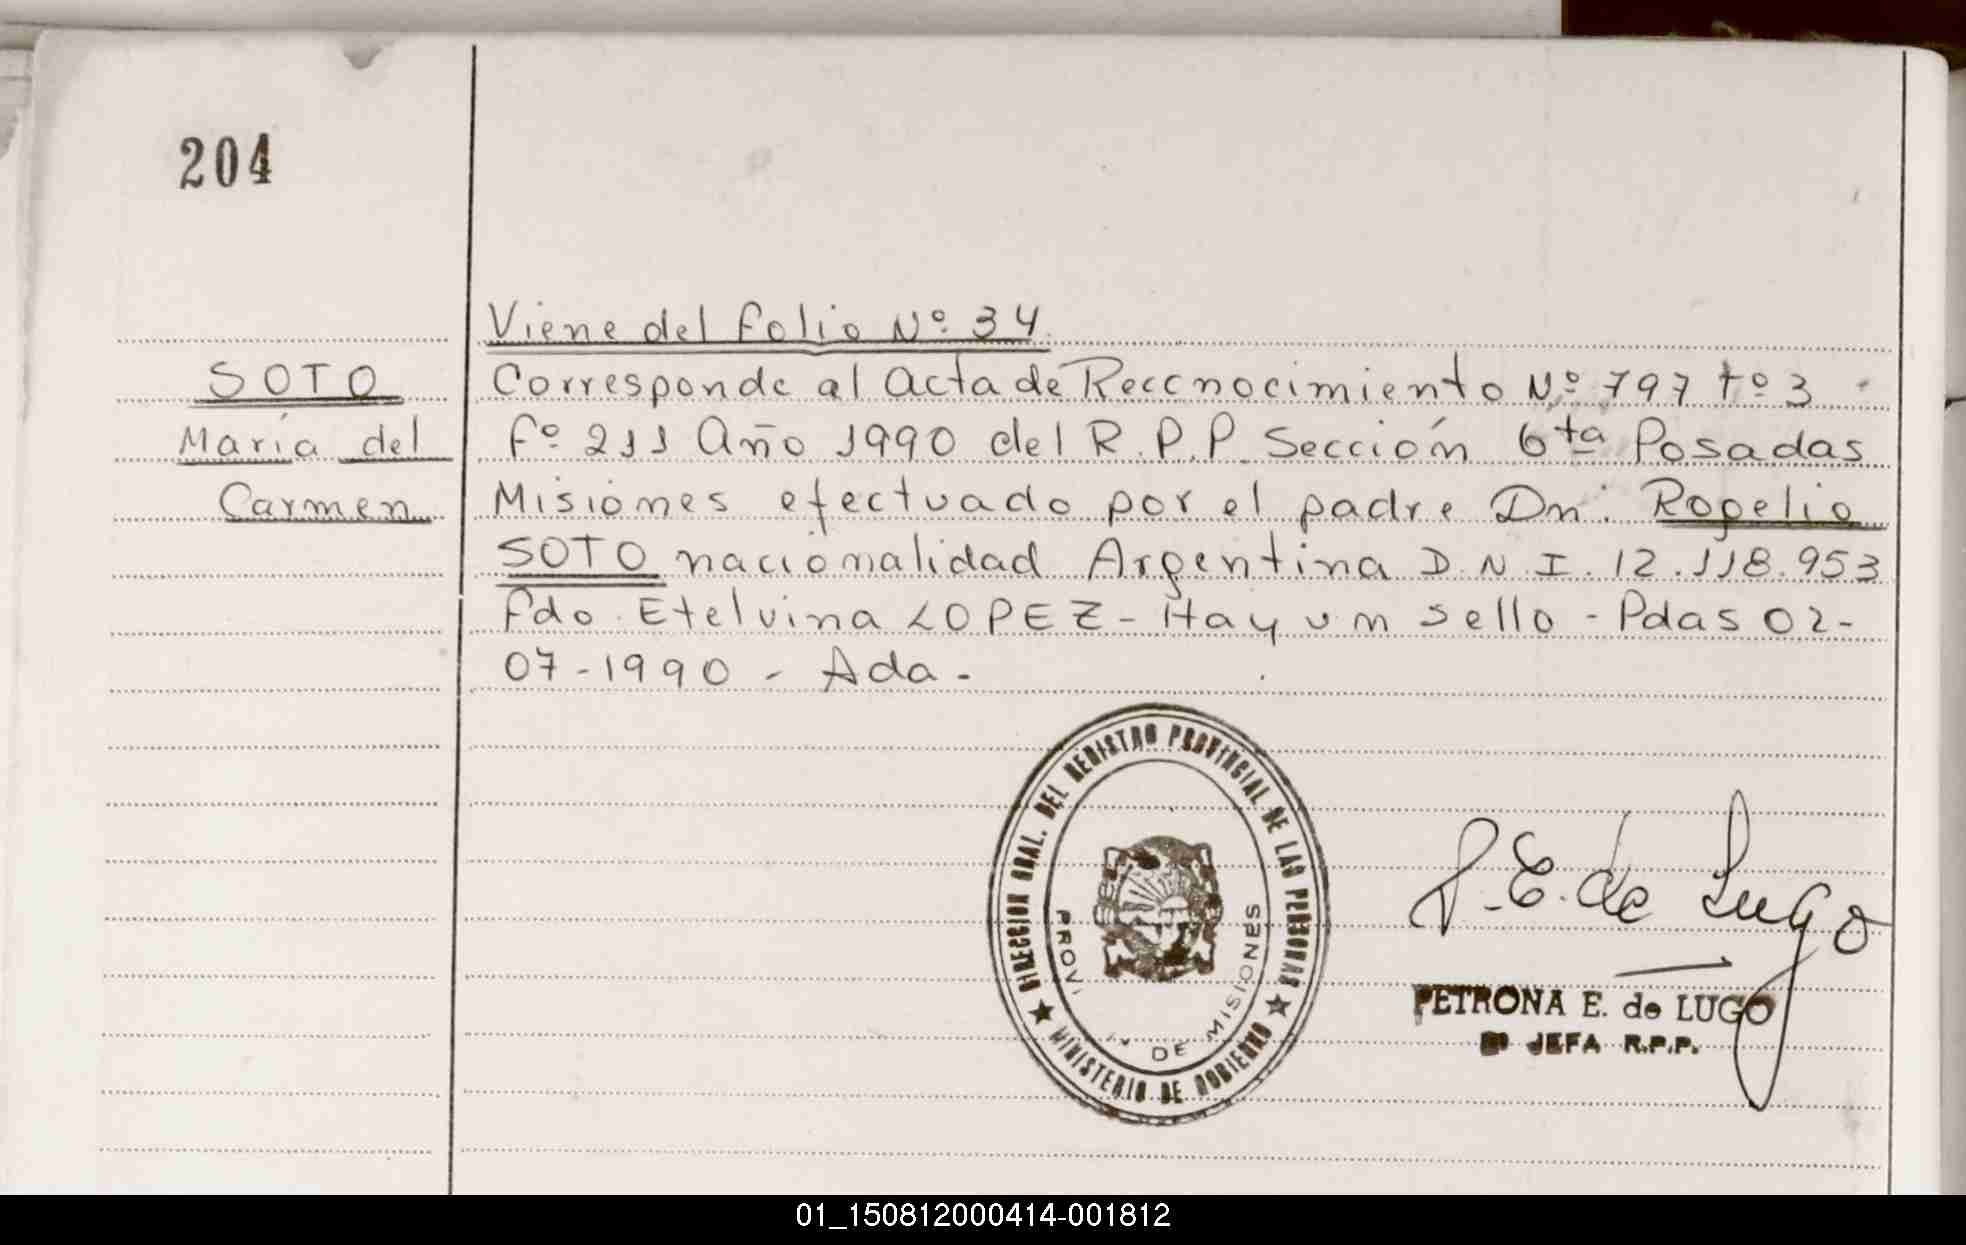 204
Viene del folio Nº 34
SOTO
María del
Carmen
Corresponde al acta de Reccnocimiento Nº 797 tº 3
fº 211 Año 1990 del R.P.P. Sección 6ta Posadas
Misiones efectuado por el padre Dn: Rogelio
SOTO nacionalidad Argentina D.N.I. 12.118.953
fdo. Etelvina LOPEZ - Hay un sello - Pdas 02-
07-1990 - Ada -
DIRECCION GRAL. DEL REGISTRO PROVINCIAL DE LAS PERSONAS
PROV. DE MISIONES
★ MINISTERIO DE GOBIERNO ★
P. E. de Lugo
PETRONA E. de LUGO
JEFA R.P.P.
01_150812000414-001812